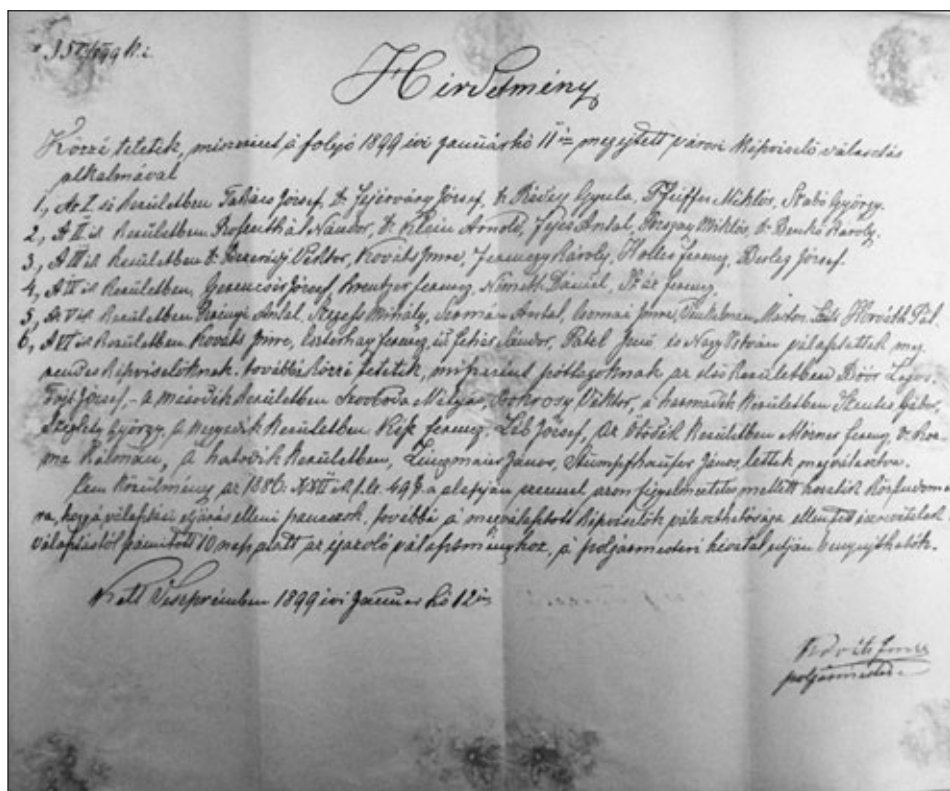 Hirdetmény
Közzé tétetik, miszerint a folyó 1899 évi január hó 11én megejtett városi képviselő választás
alkalmával
1., Az I. ső kerületben Takács József, Dr Fejérváry József, Dr Rédey Gyula, Pfeiffer Miklós, Szabó György.
2., A II. ik kerületben Rosenthál Nándor, Dr Klein Arnold, Vejes Antal, Miklós, Dr Benkő Károly.
3., A III ik kerületben Dr Viktor, Kováts Imre, Ferenczy Károly, Holles Ferencz, József.
4., A IV ik kerületben, Gerencsér József, Kreutzer Ferencz, Németh Dániel, Ferencz
5., A V ik kerületben Antal, Mihály, Antal, Csomai Imre, Márton, Horváth Pál.
6., A VI ik kerületben Kováts Imre, Eszterhay Ferencz, Sándor, Jenő és Nagy István választattak meg
rendes képviselőknek. továbbá közzé tétetik, miszerint póttagoknak az első kerületben Boór Lajos,
József, - a második kerületben Szvoboda Mátyás, Viktor, a harmadik kerületben Szentes Gábor,
György, a negyedik kerületben Kiss Ferencz, Léb József, az ötödik kerületben Ferencz, Dr
Kálmán, a hatodik kerületben, Lingmaier János, Stumpfhauser János, lettek megválasztva.
az 1886. XXII ik t. cz. 49 §. a alapján azzal, azon figyelmeztetés mellett hozatik köztudomá
ra, hogy a választási eljárás elleni panaszok, továbbá a megválasztott képviselők választhatósága elleni észrevételek
választástól számított 10 nap alatt az igazoló választmányhoz, a polgármesteri hivatal útján benyujthatók.
Kelt Veszprémben 1899 évi Január hó 12én
Kováts Imre
polgármester